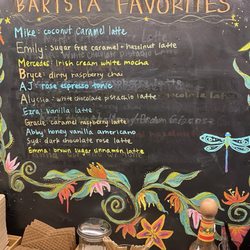 BARISTA FAVORITES
Mike: coconut caramel latte
Emily: sugar free caramel + hazelnut latte
Mercedes: Irish cream white mocha
Bryce: dirty raspberry chai
AJ: rose espresso tonic
Alyssia: white chocolate pistachio latte
Ezra: vanilla latte
Gracie: caramel raspberry latte
Abby: honey vanilla americano
Syd: dark chocolate rose latte
Emma: brown sugar cinnamon latte